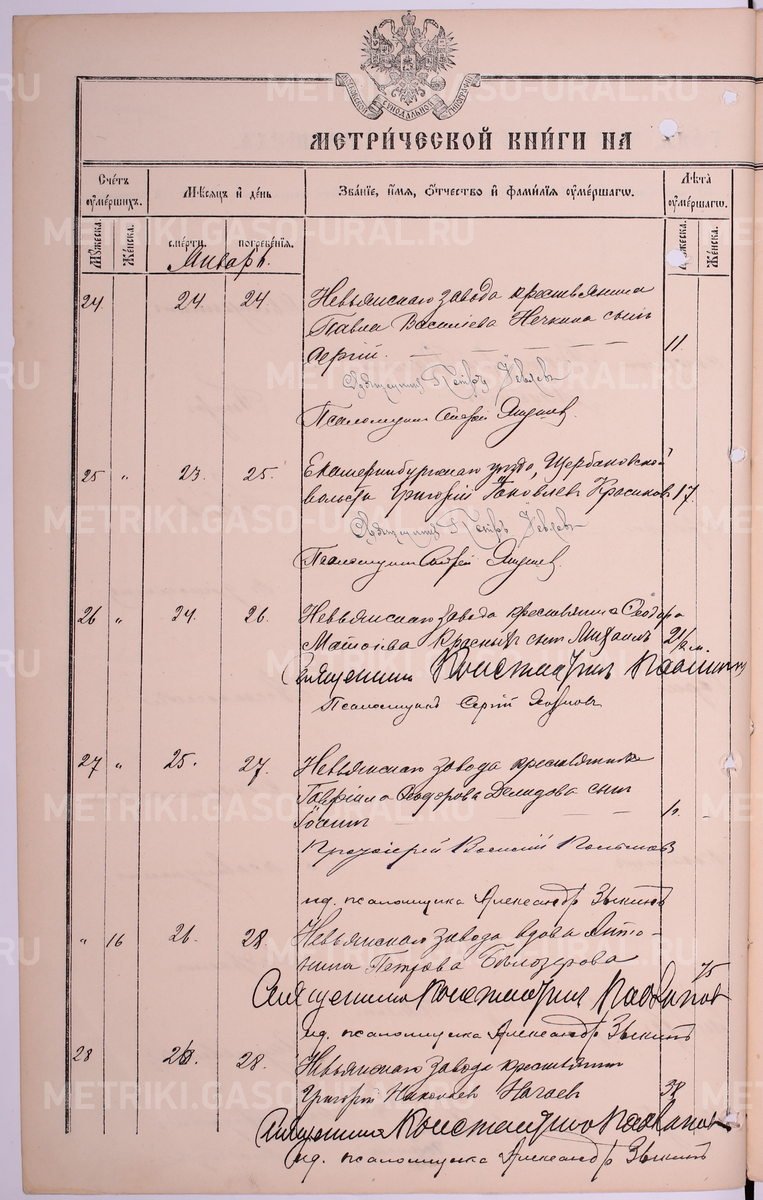 МЕТРИ́ЧЕСКОЙ КНИ́ГИ НА
Сче́тъ ᲂу҆ме́ршихъ.
Мѣ́сяцъ и҆ де́нь
Зва́нїе, и҆́мѧ, ѻ҆́тчество и҆ фами́лїѧ ᲂу҆ме́ршагѡ.
Лѣ́та ᲂу҆ме́ршагѡ.
Мꙋ́жеска.
Же́нска.
сме́рти.
погребе́нїѧ.
Же́нска.
Январь.
24 24 24. Невьянскаго завода крестьянина
Павла Василіева Нечкина сынъ
Сергій. 11
Священникъ Петръ Іевлевъ
Псаломщик Сергій
25 " 23. 25. Екатеринбургскаго уѣзда, Щербаковской
волости Григорій Яковлевъ Красиковъ 17.
Священникъ Петръ Іевлевъ
Псаломщик Сергій
26 " 24. 26. Невьянскаго завода крестьянина Ѳеодора
сынъ Михаилъ
Священникъ Константинъ
Псаломщикъ Сергій
27 " 25. 27. Невьянскаго завода крестьянина
Гавріила Ѳеодорова Демидова сынъ
Іоаннъ
Протоіерей Василій
ид. псаломщика Александр Зыкинъ
" 16 26. 28 Невьянскаго завода вдова Анто-
нина Петрова Бѣлозерова 75
Священникъ Константинъ
ид. псаломщика Александр Зыкинъ
28 28. Невьянскаго завода крестьянинъ
Григорій Николаевъ 38
Священникъ Константинъ
ид. псаломщика Александр Зыкинъ
METRIKI.GASO-URAL.RU